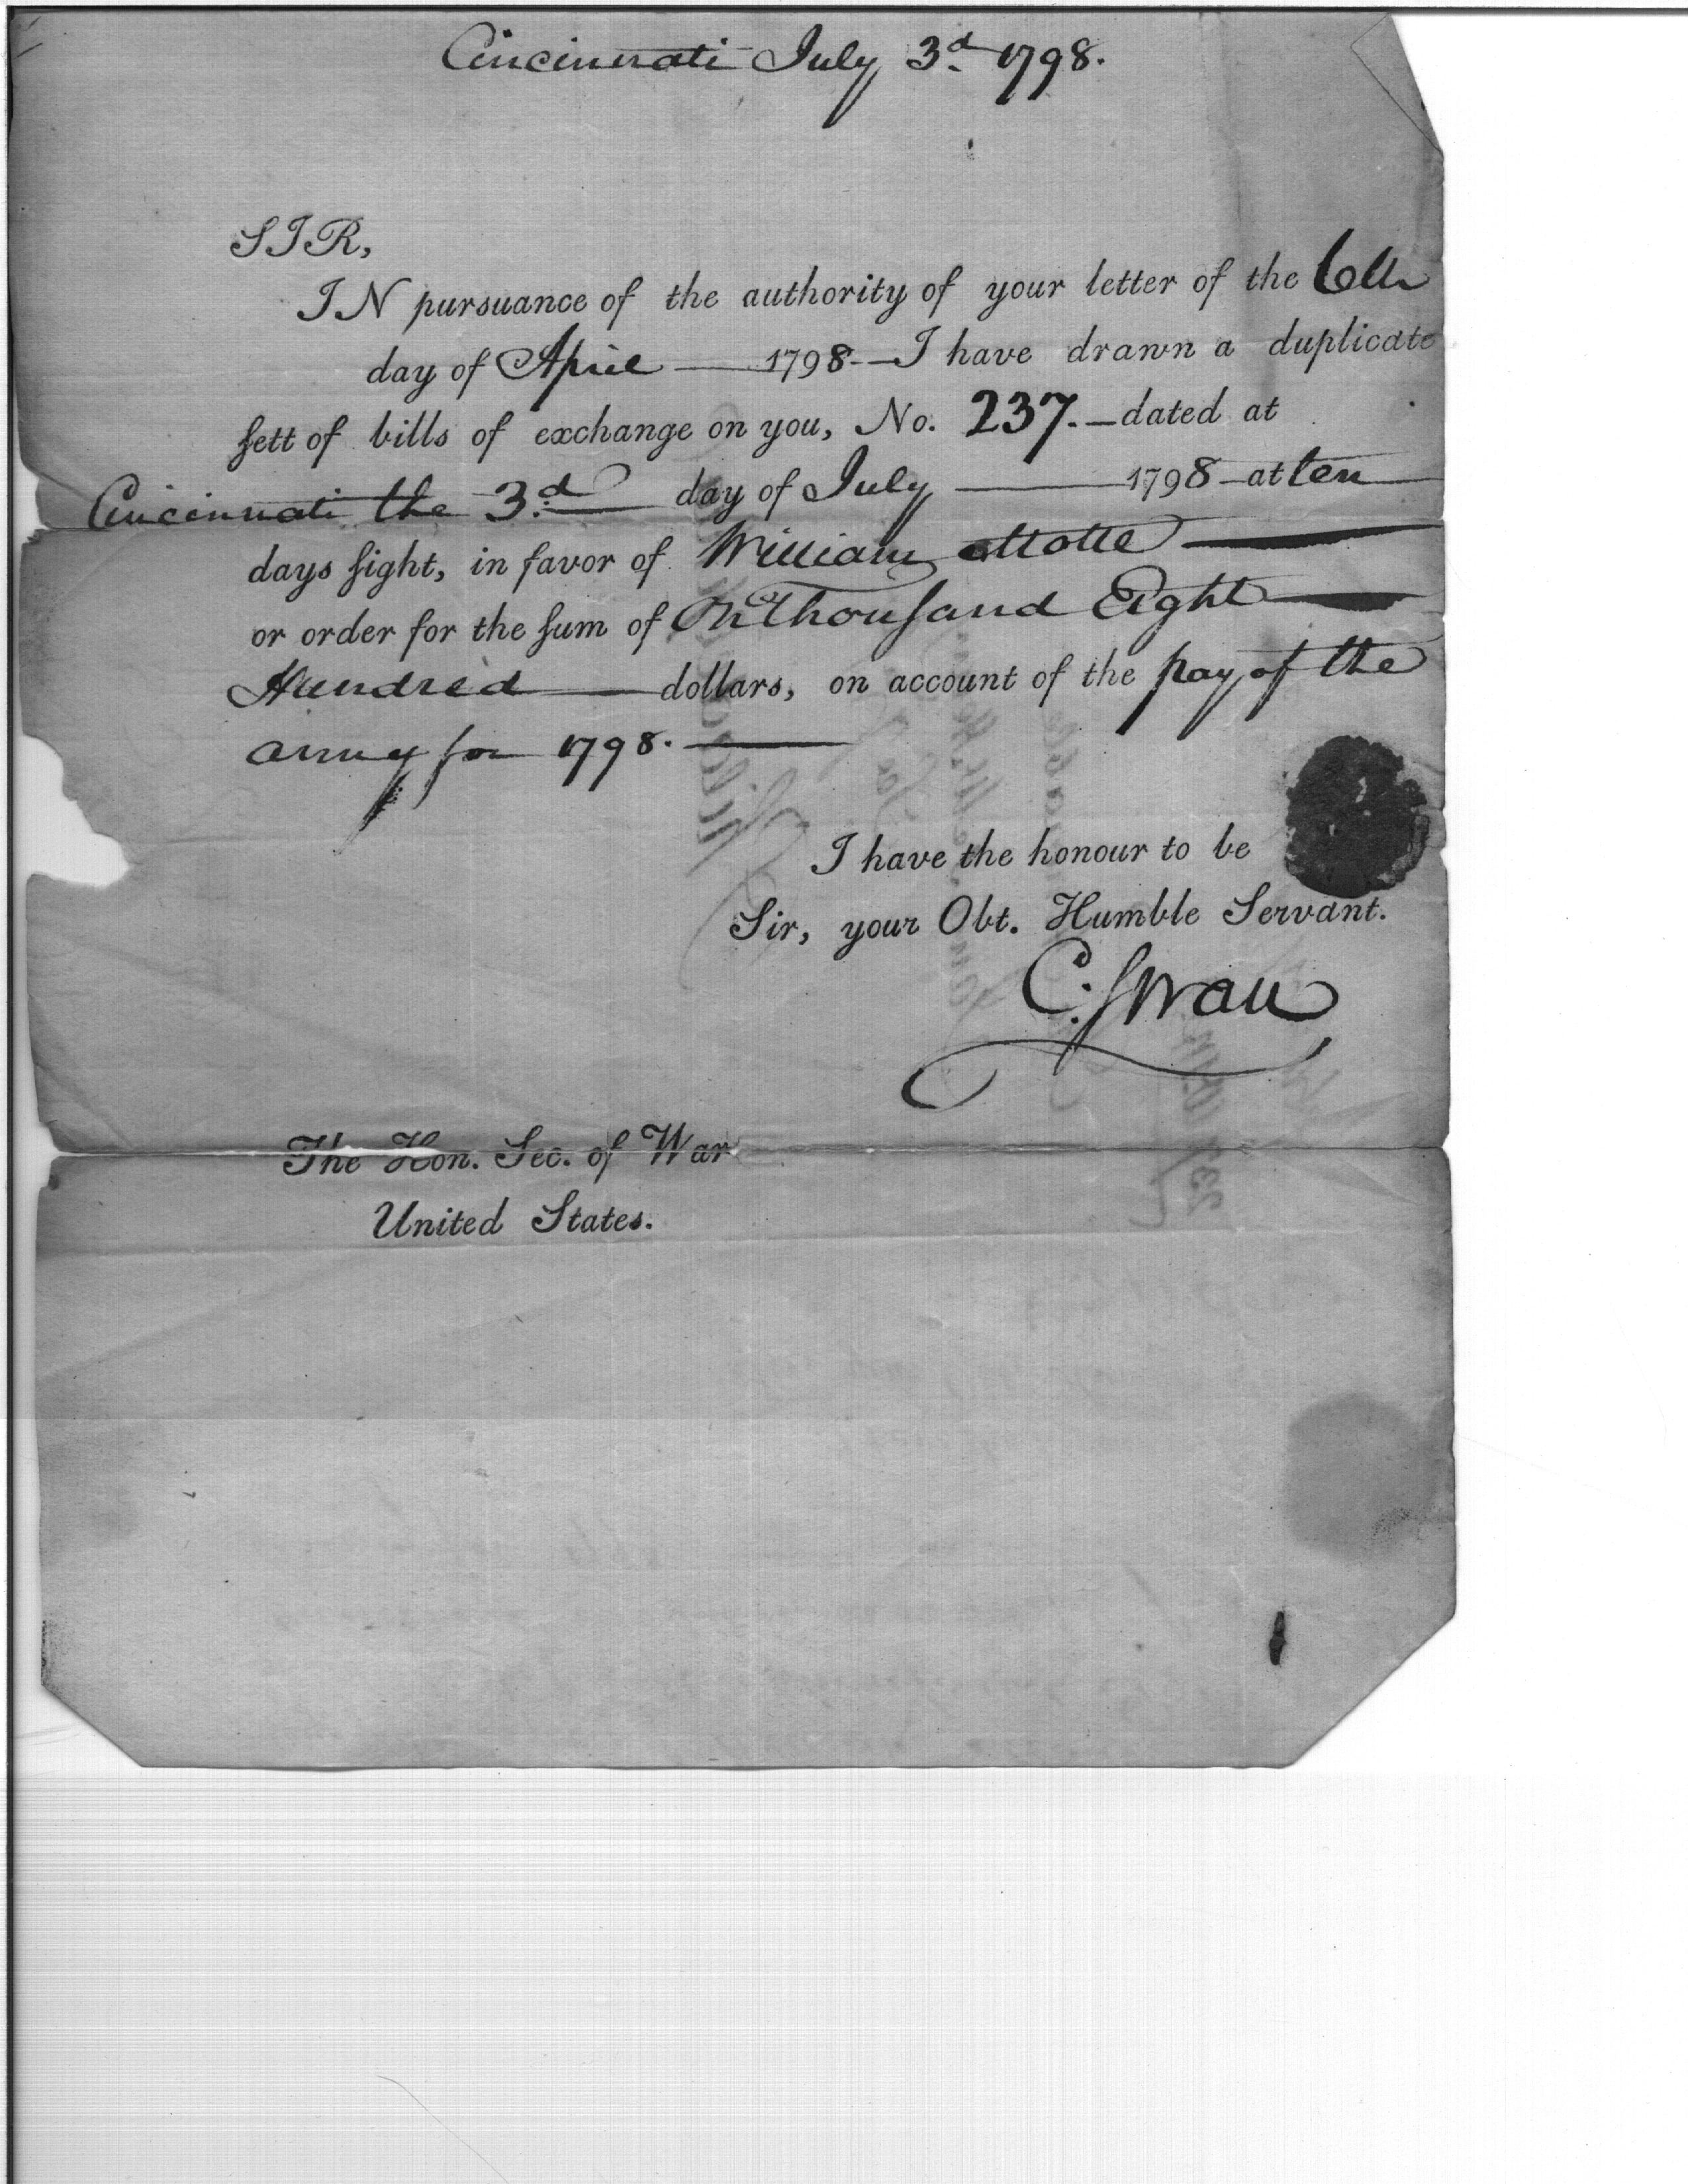 Cincinnati July 3d. 1798.
SIR,
IN pursuance of the authority of your letter of the 6th
day of April — 1798 — I have drawn a duplicate
sett of bills of exchange on you, No. 237. — dated at
Cincinnati the 3d. day of July — 1798 — at ten
days sight, in favor of William Motte —
or order for the sum of One Thousand Eight —
Hundred — dollars, on account of the pay of the
army for 1798. —
I have the honour to be
Sir, your Obt. Humble Servant.
C. Swan
The Hon. Sec. of War
United States.